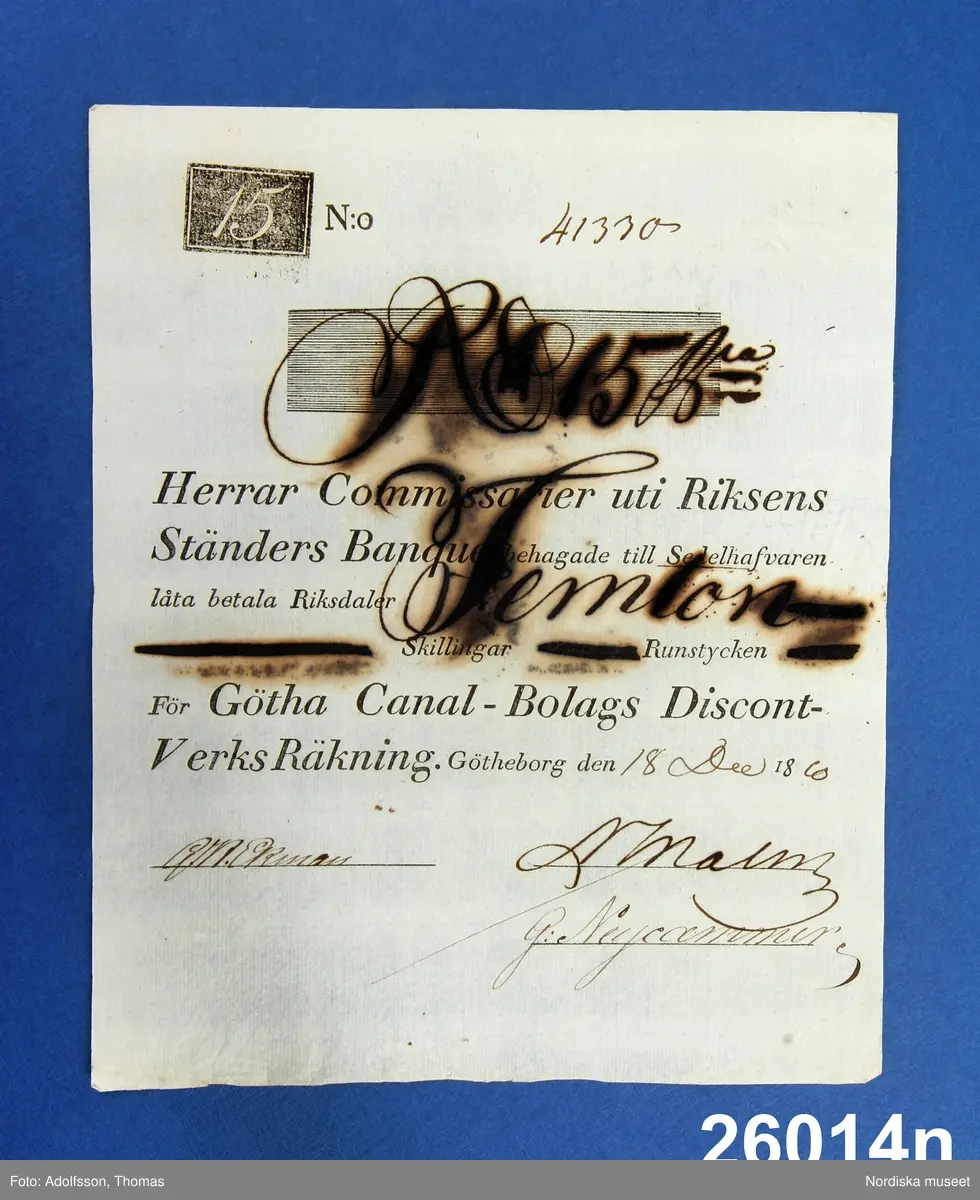 15 N:o 41330
Rd 15 B:co
Herrar Commissarier uti Riksens
Ständers Banque behagade till Sedelhafvaren
låta betala Riksdaler Femton
Skillingar Runstycken
För Götha Canal-Bolags Discont-
Verks Räkning. Götheborg den 18 Dec 18
Ekman Malm
26014n
Foto: Adolfsson, Thomas Nordiska museet